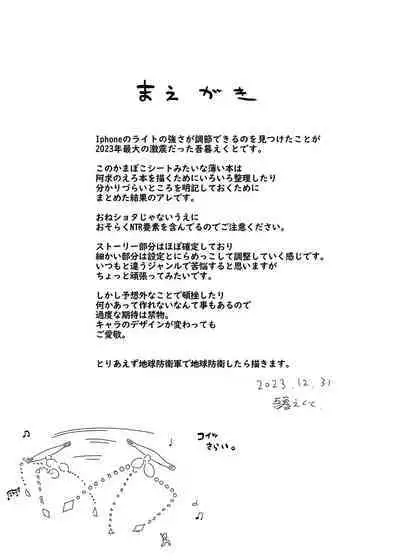 まえがき
Iphoneのライトの強さが調節できるのを見つけたことが
2023年最大の激震だった吾暮えくとです。
このかまぼこシートみたいな薄い本は
阿求のえろ本を描くためにいろいろ整理したり
分かりづらいところを明記しておくために
まとめた結果のアレです。
おねショタじゃないうえに
おそらくNTR要素を含んでるのでご注意ください。
ストーリー部分はほぼ確定しており
細かい部分は設定とにらめっこして調整していく感じです。
いつもと違うジャンルで苦悩すると思いますが
ちょっと頑張ってみたいです。
しかし予想外なことで頓挫したり
何かあって作れないなんて事もあるので
過度な期待は禁物。
キャラのデザインが変わっても
ご愛敬。
とりあえず地球防衛軍で地球防衛したら描きます。
2023.12.31
吾暮えくと。
コイツ
きらい。